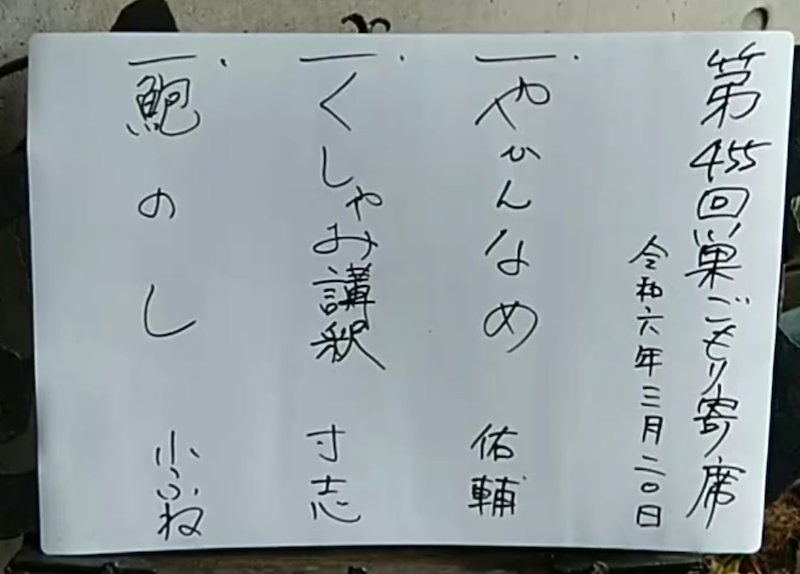 第455回巣ごもり寄席
令和六年三月二〇日
一.やかんなめ 佑輔
一.くしゃみ講釈 寸志
一.鮑のし 小ふね